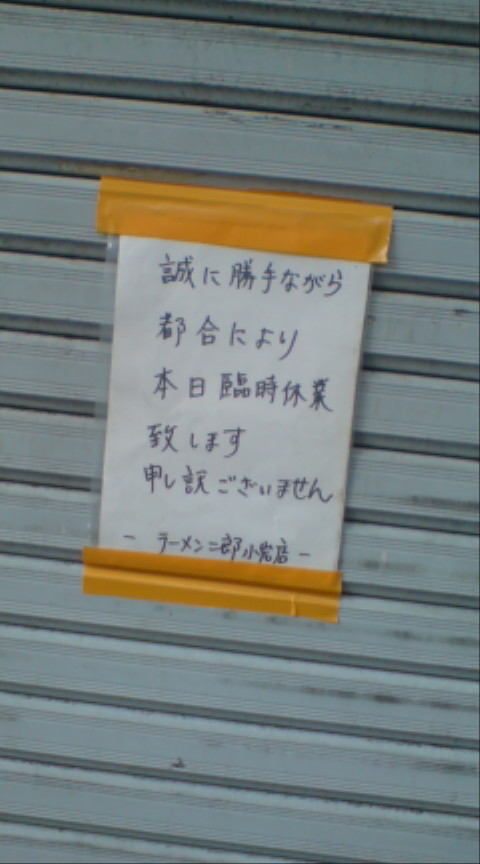 誠に勝手ながら
都合により
本日臨時休業
致します
申し訳ございません
－ ラーメン二郎小岩店 －